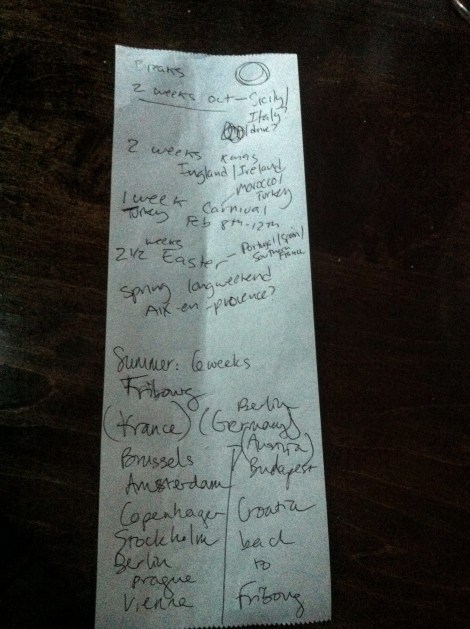 Breaks
2 weeks oct - Sicily/
Italy?
(drive?
2 weeks xmas
England/Ireland
Morocco/
Turkey
1 week Carnival
Turkey Feb 8th-12th
2 1/2 weeks Easter - Portugal/Spain/
Southern France
Spring longweekend
Aix-en-provence?
Summer: 6 weeks
Fribourg
(France) (Germany)
Brussels
Amsterdam
Copenhagen
Stockholm
Berlin
prague
Vienne
Berlin
(Austria)
Budapest
Croatia
back
to
Fribourg